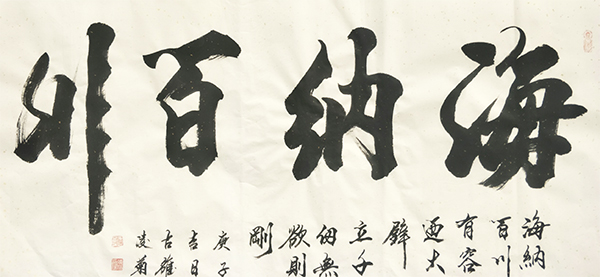 海納百川
海納
百川
有容
迺大
壁
立千
仞無
欲則
剛
庚子
吉日
古
菊